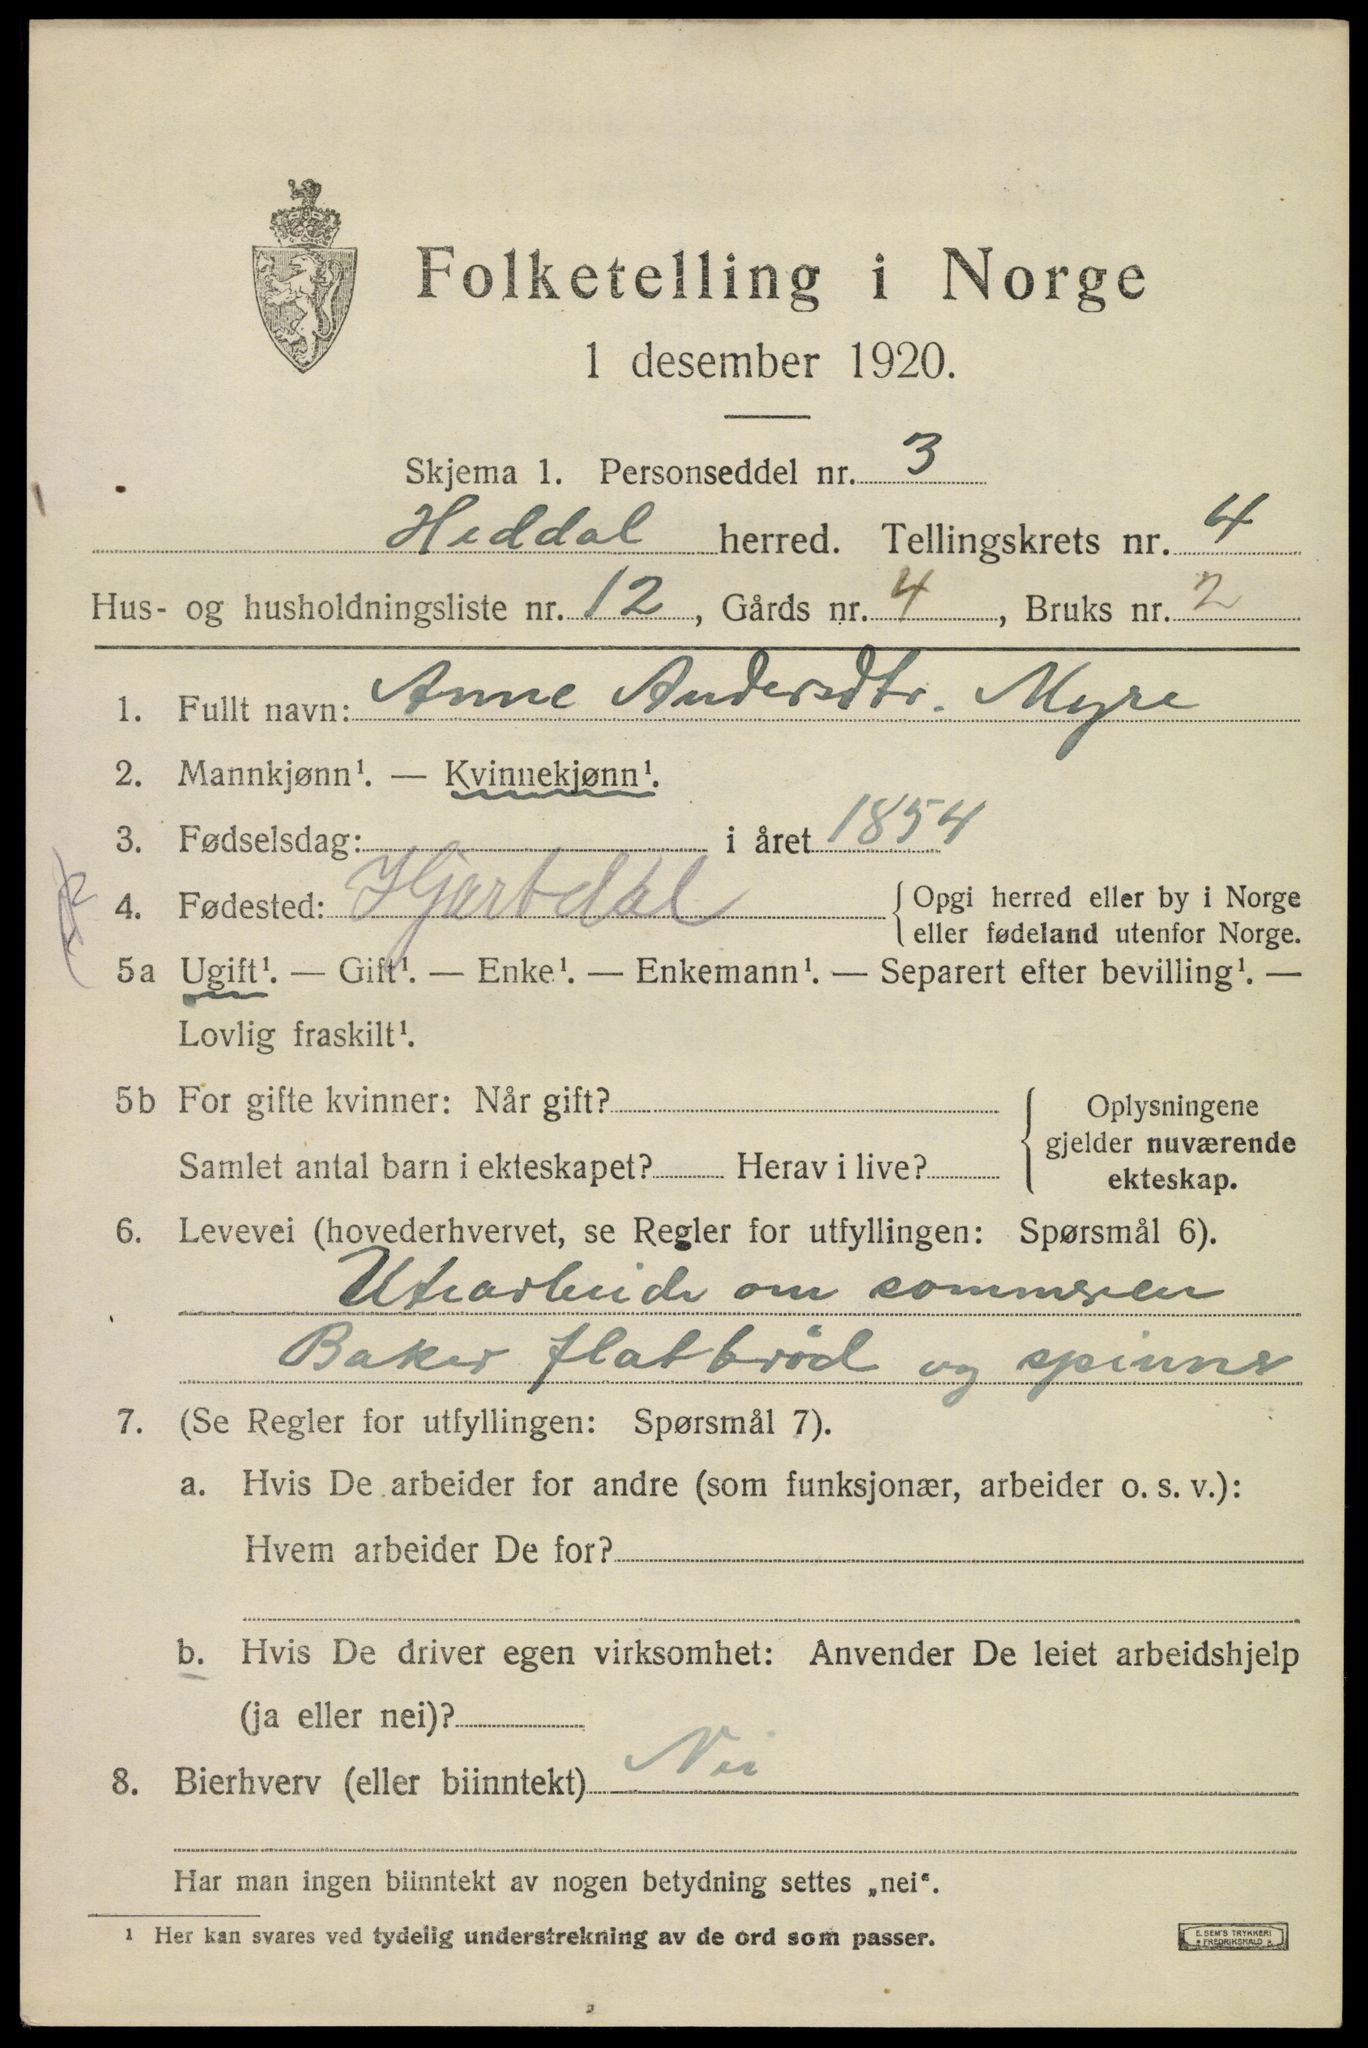 Folketelling i Norge
1 desember 1920.
Skjema 1. Personseddel nr. 3
Heddal herred. Tellingskrets nr. 4
Hus- og husholdningsliste nr. 12, Gårds nr. 4, Bruks nr. 2
1. Fullt navn: Anne Andersdtr. Myre
2. Mannkjønn¹. — Kvinnekjønn¹.
3. Fødselsdag: i året 1854
4. Fødested: Hjartdal { Opgi herred eller by i Norge
eller fødeland utenfor Norge.
5a Ugift¹. — Gift¹. — Enke¹. — Enkemann¹. — Separert efter bevilling¹. —
Lovlig fraskilt¹.
5b For gifte kvinner: Når gift?
Samlet antal barn i ekteskapet? Herav i live?
{ Oplysningene
gjelder nuværende
ekteskap.
6. Levevei (hovederhvervet, se Regler for utfyllingen: Spørsmål 6).
Utearbeide om sommeren
Baker flatbrød og spinner
7. (Se Regler for utfyllingen: Spørsmål 7).
a. Hvis De arbeider for andre (som funksjonær, arbeider o. s. v.):
Hvem arbeider De for?
b. Hvis De driver egen virksomhet: Anvender De leiet arbeidshjelp
(ja eller nei)?
8. Bierhverv (eller biinntekt) Nei
Har man ingen biinntekt av nogen betydning settes „nei“.
¹ Her kan svares ved tydelig understrekning av de ord som passer.
E. SEM'S TRYKKERI
FREDRIKSHALD